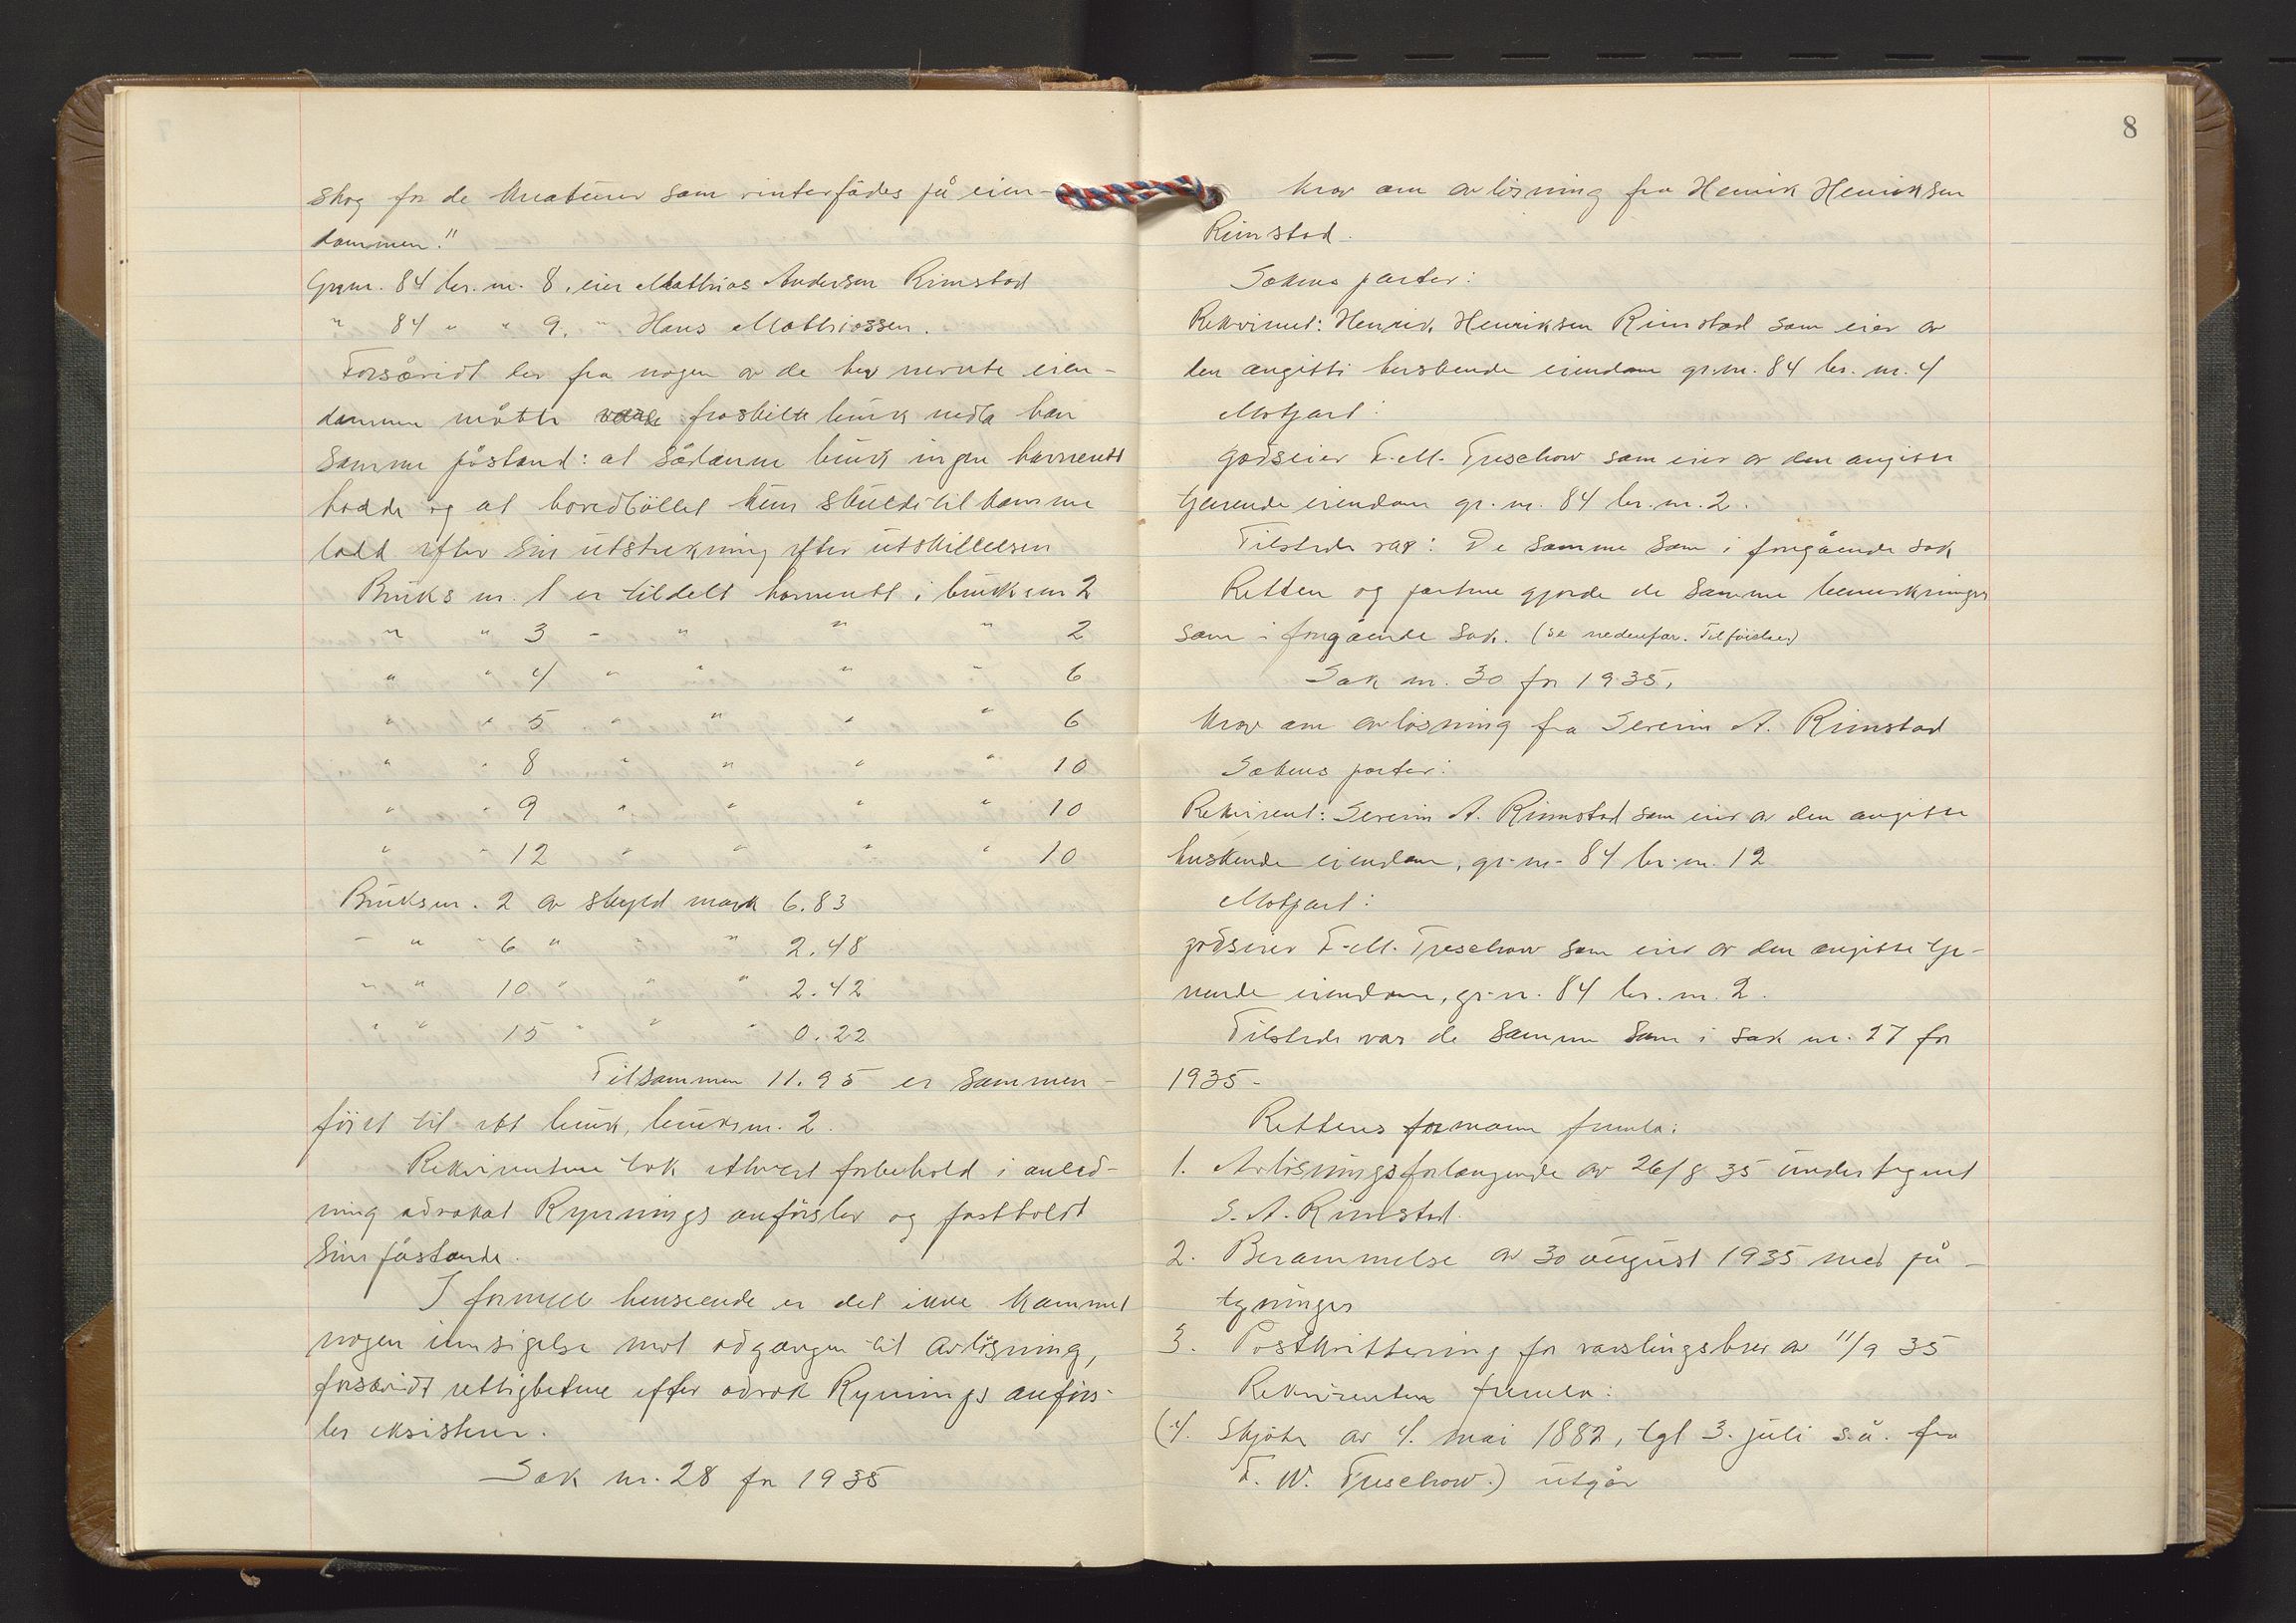 skog for de kreaturer som vinterfødes på eien-
dommen."
Grnr. 84 br. nr. 8, eier Mathias Andersen Rimstad
" 84 " " 9. " Hans Mathiassen.
Forsåvidt der fra nogen av de her nevnte eien-
dommer måtte fraskilte bruk nedla han
samme påstand: at sådanne bruk ingen havnerett
hadde og at hovedbøllet kun skulde til komme
talt efter sin utstrekning efter utskillelsen
Bruks nr. 1 er tildelt havnerett i bruksnr 2
" " 3 " " " " 2
" " 4 " " " " 6
" " 5 " " " " 6
" " 8 " " " " 10
" " 9 " " " " 10
" " 12 " " " " 10
Bruksnr. 2 av skyld mark 6.83
" " " 6 " " " 2.48
" " 10 " " " 2.42
" " 15 " " " 0.22
Tilsammen 11.95 er sammen-
føiet til ett bruk, bruksnr. 2.
Rekvirentene tok ethvert forbehold i anled-
ning advokat Rynnings anførsler og fastholdt
sine påstande.
I formell henseende er det ikke kommet
nogen innsigelse mot adgangen til avløsning,
forsåvidt rettighetene efter advok Rynnings anførs-
ler eksisterer.
Sak nr. 28 for 1935
8
Krav om avløsning fra Henrik Henriksen
Rimstad.
Sakens parter:
Rekvirent: Henrik Henriksen Rimstad som eier av
den angitte herskende eiendom gr.nr. 84 br. nr. 4
Motpart:
godseier F. M. Treschow som eier av den angitte
tjenende eiendom gr. nr. 84 br. nr. 2.
Tilstede var: De samme som i foregående sak
Retten og partene gjorde de samme bemerkninger
som i foregående sak. (se nedenfor. Tilføielser)
Sak nr. 30 for 1935.
Krav om avløsning fra Severin A. Rimstad
Sakens parter:
Rekvirent: Severin A. Rimstad som eier av den angitte
herskende eiendom, gr. nr. 84 br. nr. 12
Motpart:
godseier F. M. Treschow som eier av den angitte tje-
nende eiendom, gr. nr. 84 br. nr. 2.
Tilstede var de samme som i sak nr. 27 for
1935-
Rettens formann fremla:
1. Avløsningsforlangende av 26/8 35 undertegnet
S. A. Rimstad.
2. Berammelse av 30 august 1935 med på-
tegninger
3. Postkvittering for varslingsbrev av 11/9 35
Rekvirenten fremla:
(4. Skjøte av 4. mai 1882, tgl 3. juli s.å. fra
F. W. Treschow.) utgår